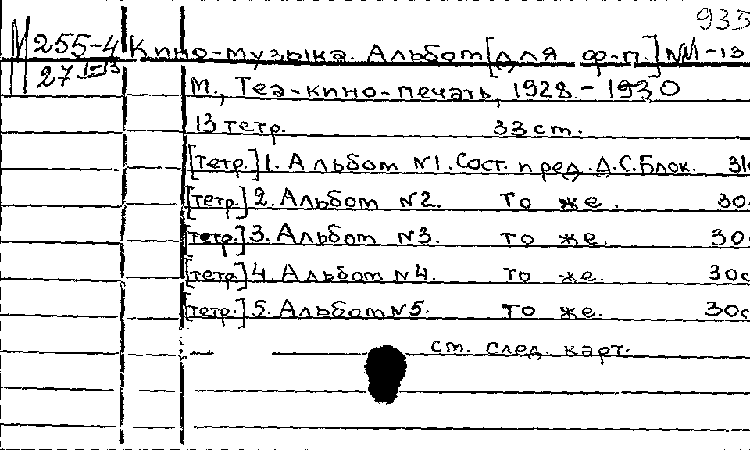 935
М 255-4 Кино-музыка. Альбом [для ф-п.] №№1-13
27 I-13
М., Теа-кино-печать, 1928-1930
13 тетр. 33 см.
[тетр.] 1. Альбом №1. Сост. и ред. Д.С. Блок. 31с
[тетр.] 2. Альбом №2. То же. 30.
[тетр.] 3. Альбом №3. То же. 30
[тетр.] 4. Альбом №4. То же. 30с
[тетр.] 5. Альбом №5. То же. 30с
см. след. карт.